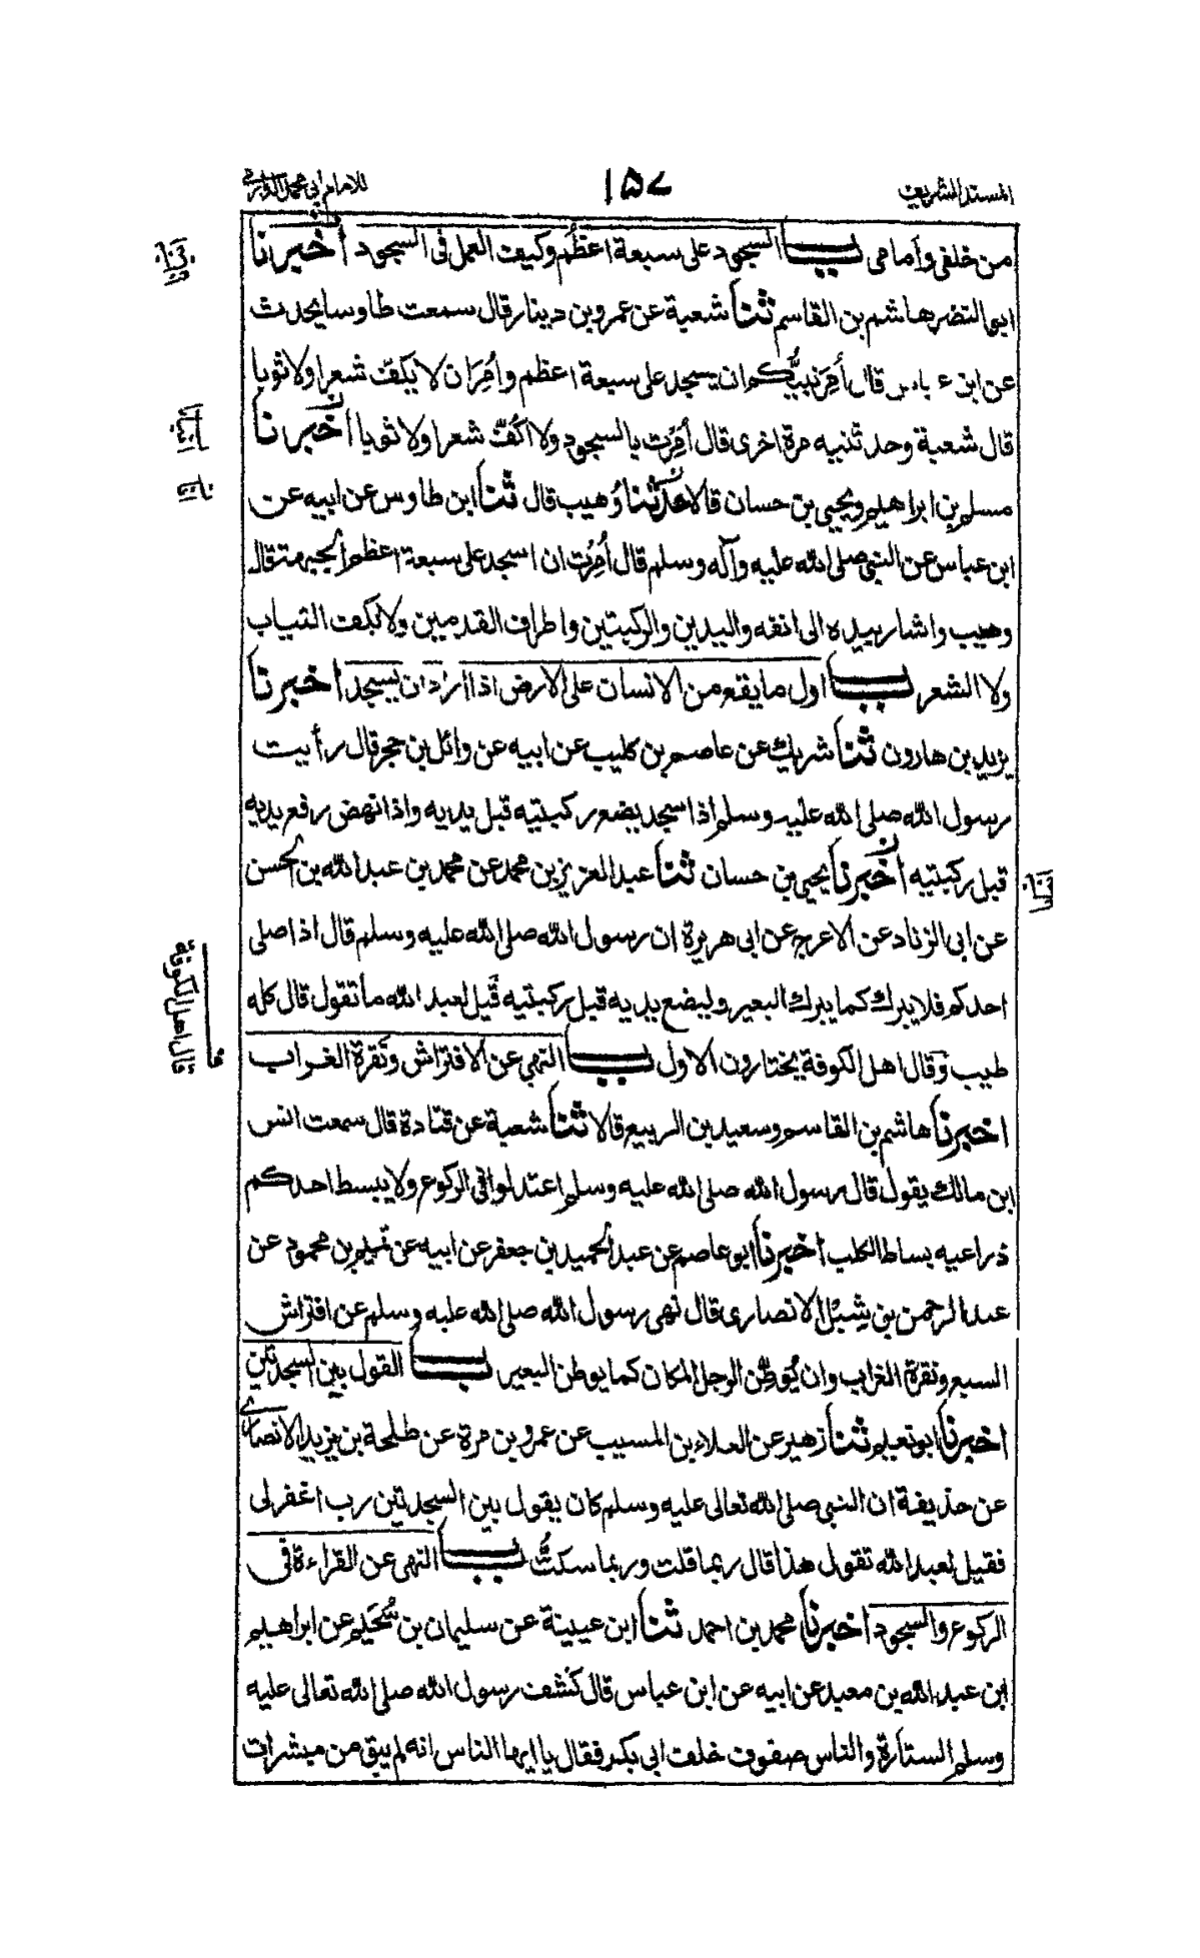 المسند الشريف
١٥٧
للامام ابی محمد الدارمی
من خلفی وأمامی باب السجود علی سبعة اعظُم وکیف العمل فی السجود أخبرنا
ابو النضر هاشم بن القاسم ثنا شعبة عن عمرو بن دینار قال سمعت طاوسا یحدث
عن ابن عباس قال أُمِرَ نبیُّکم ان یسجد علی سبعة اعظم وأُمِرَ ان لا یَکفّ شعرا ولا ثوبا
قال شعبة وحدثنیه مرة اخری قال أُمِرْت بالسجود ولا اکُفّ شعرا ولا ثوبا اخبرنا
مسلم بن ابراهیم ویحیی بن حسان قالا حدثنا وُهیب قال ثنا ابن طاوس عن ابیه عن
ابن عباس عن النبی صلی الله علیه وآله وسلم قال أُمِرْت ان اسجد علی سبعة اعظم الجبهة قال
وهیب واشار بیده الی انفه والیدین والرکبتین واطراف القدمین ولا نکف الثیاب
ولا الشعر باب اول ما یقع من الانسان علی الارض اذا اراد ان یسجد اخبرنا
یزید بن هارون ثنا شریك عن عاصم بن کلیب عن ابیه عن وائل بن حجر قال رأیت
رسول الله صلی الله علیه وسلم اذا سجد یضع رکبتیه قبل یدیه واذا نهض رفع یدیه
قبل رکبتیه اخبرنا یحیی بن حسان ثنا عبد العزیز بن محمد عن محمد بن عبد الله بن الحسن
عن ابی الزناد عن الاعرج عن ابی هریرة ان رسول الله صلی الله علیه وسلم قال اذا صلی
احدکم فلا یبرك کما یبرك البعیر ولیضع یدیه قبل رکبتیه قیل لعبد الله ما تقول قال کله
طیب وقال اهل الکوفة یختارون الاول باب النهی عن الافتراش ونقرة الغراب
اخبرنا هاشم بن القاسم وسعید بن الربیع قالا ثنا شعبة عن قتادة قال سمعت انس
ابن مالك یقول قال رسول الله صلی الله علیه وسلم اعتدلوا فی الرکوع ولا یبسط احدکم
ذراعیه بساط الکلب اخبرنا ابو عاصم عن عبد الحمید بن جعفر عن ابیه عن تمیم بن محمود عن
عبد الرحمن بن شِبْل الانصاری قال نهی رسول الله صلی الله علیه وسلم عن افتراش
السبع ونقرة الغراب وان یُوطِن الرجل المکان کما یوطن البعیر باب القول بین السجدتین
اخبرنا ابو نعیم ثنا زهیر عن العلاء بن المسیب عن عمرو بن مرة عن طلحة بن یزید الانصاری
عن حذیفة ان النبی صلی الله تعالی علیه وسلم کان یقول بین السجدتین رب اغفر لی
فقیل لعبد الله تقول هذا قال ربما قلت وربما سکتُّ باب النهی عن القراءة فی
الرکوع والسجود اخبرنا محمد بن احمد ثنا ابن عیینة عن سلیمان بن سُحَیم عن ابراهیم
ابن عبد الله بن معبد عن ابیه عن ابن عباس قال کشف رسول الله صلی الله تعالی علیه
وسلم الستارة والناس صفوف خلف ابی بکر فقال یا ایها الناس انه لم یبق من مبشرات
قال اهل الکوفة